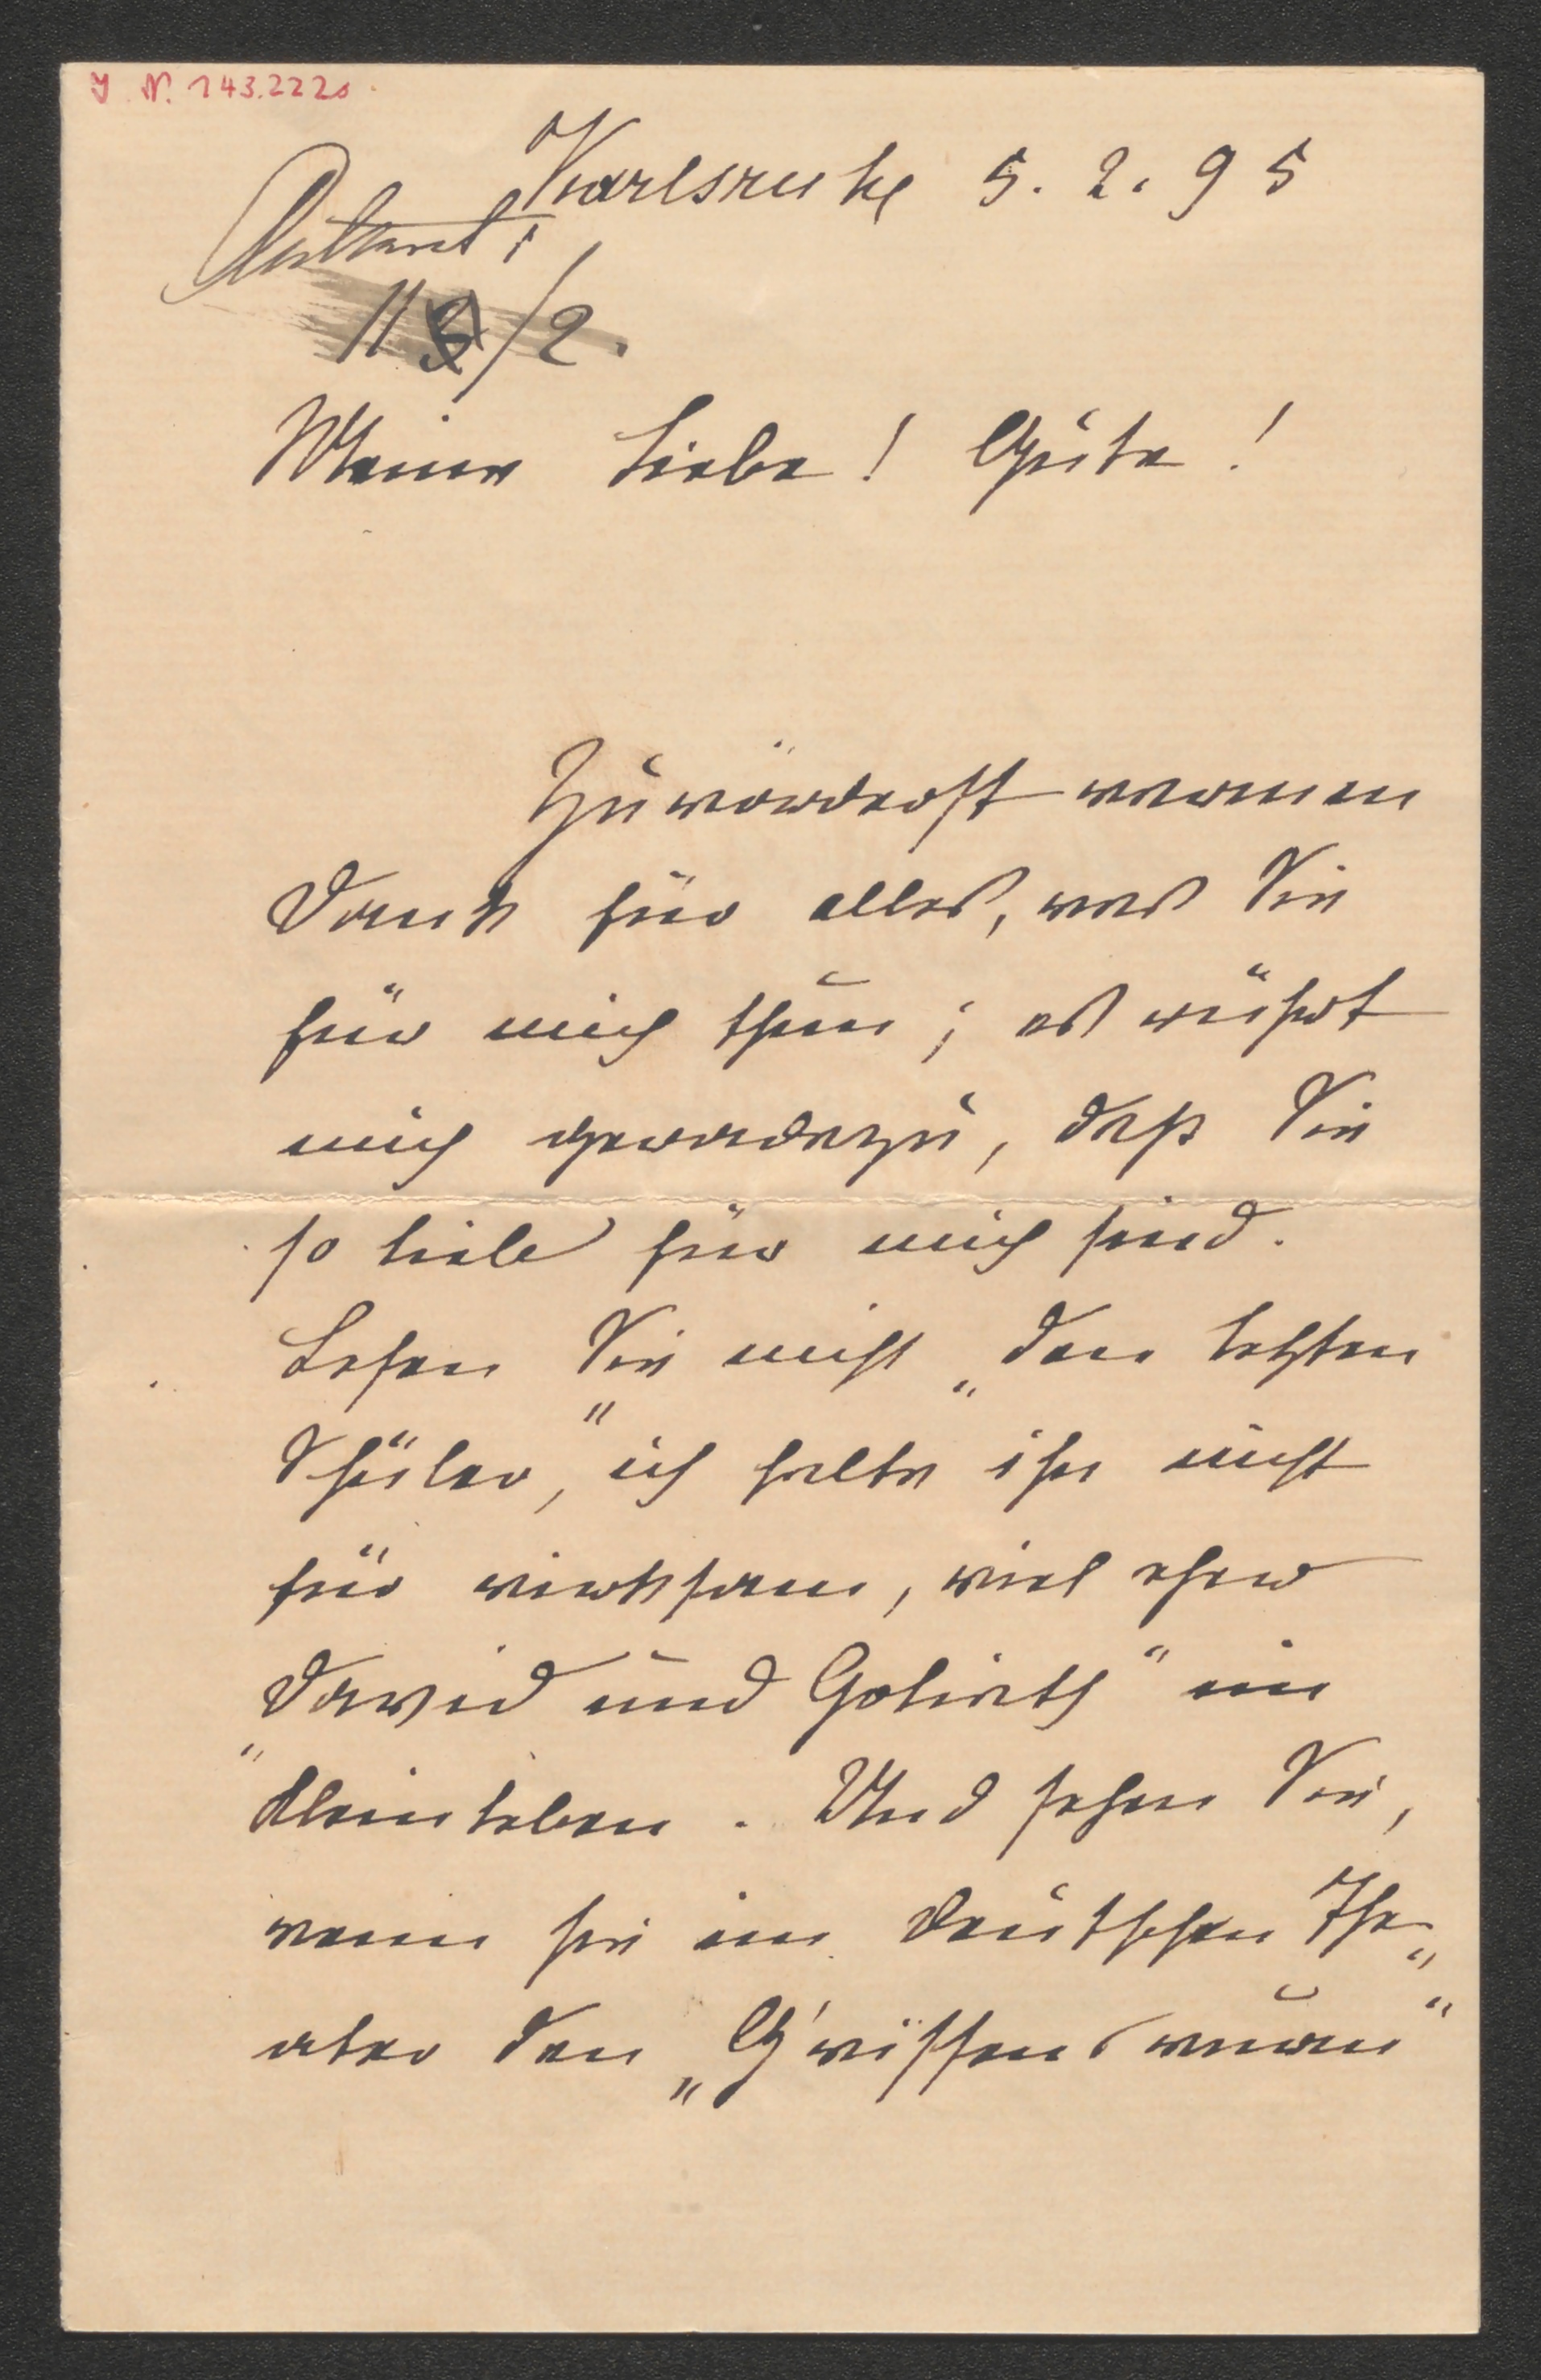 J. N. 143.222
Karlsruhe 5. 2. 95
Antwort:
11/2.
Meine Liebe! Gute!
Zuvörderst warmen
Dank für alles, was Sie
für mich thun; es rührt
mich geradezu, daß Sie
so lieb für mich sind.
Lesen Sie nicht „den letzten
Schüler", ich halte ihn nicht
für wirksam, viel eher
„David und Goliath" im
Kleinleben. Und sehen Sie,
wenn sie im deutschen The„
ater den „G'wissenswurm"